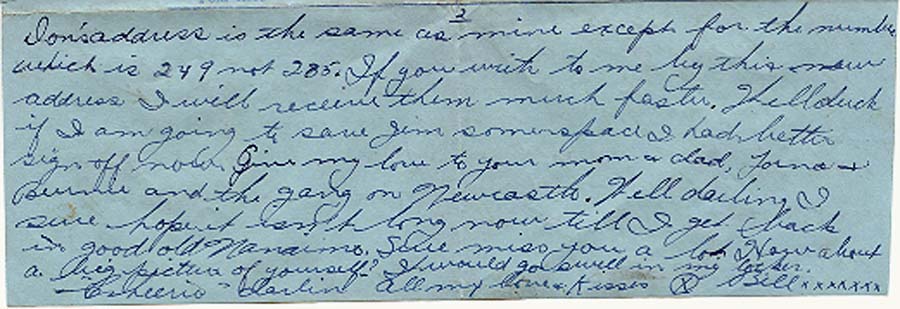 3
Don's address is the same as mine except for the number
which is 249 not 285. If you write to me by this new
address I will receive them much faster. Well duck
if I am going to save Jim some space I had better
sign off now. Give my love to your mom & dad, Lorna &
Bernie and the gang on Newcastle. Well darling I
sure hope it isn't long now till I get back
in good old Nanaimo. Sure miss you a lot. How about
a big picture of yourself? It would go swell in my locker.
- Cheerio - Darlin All my love & Kisses Bill xxxxxxx